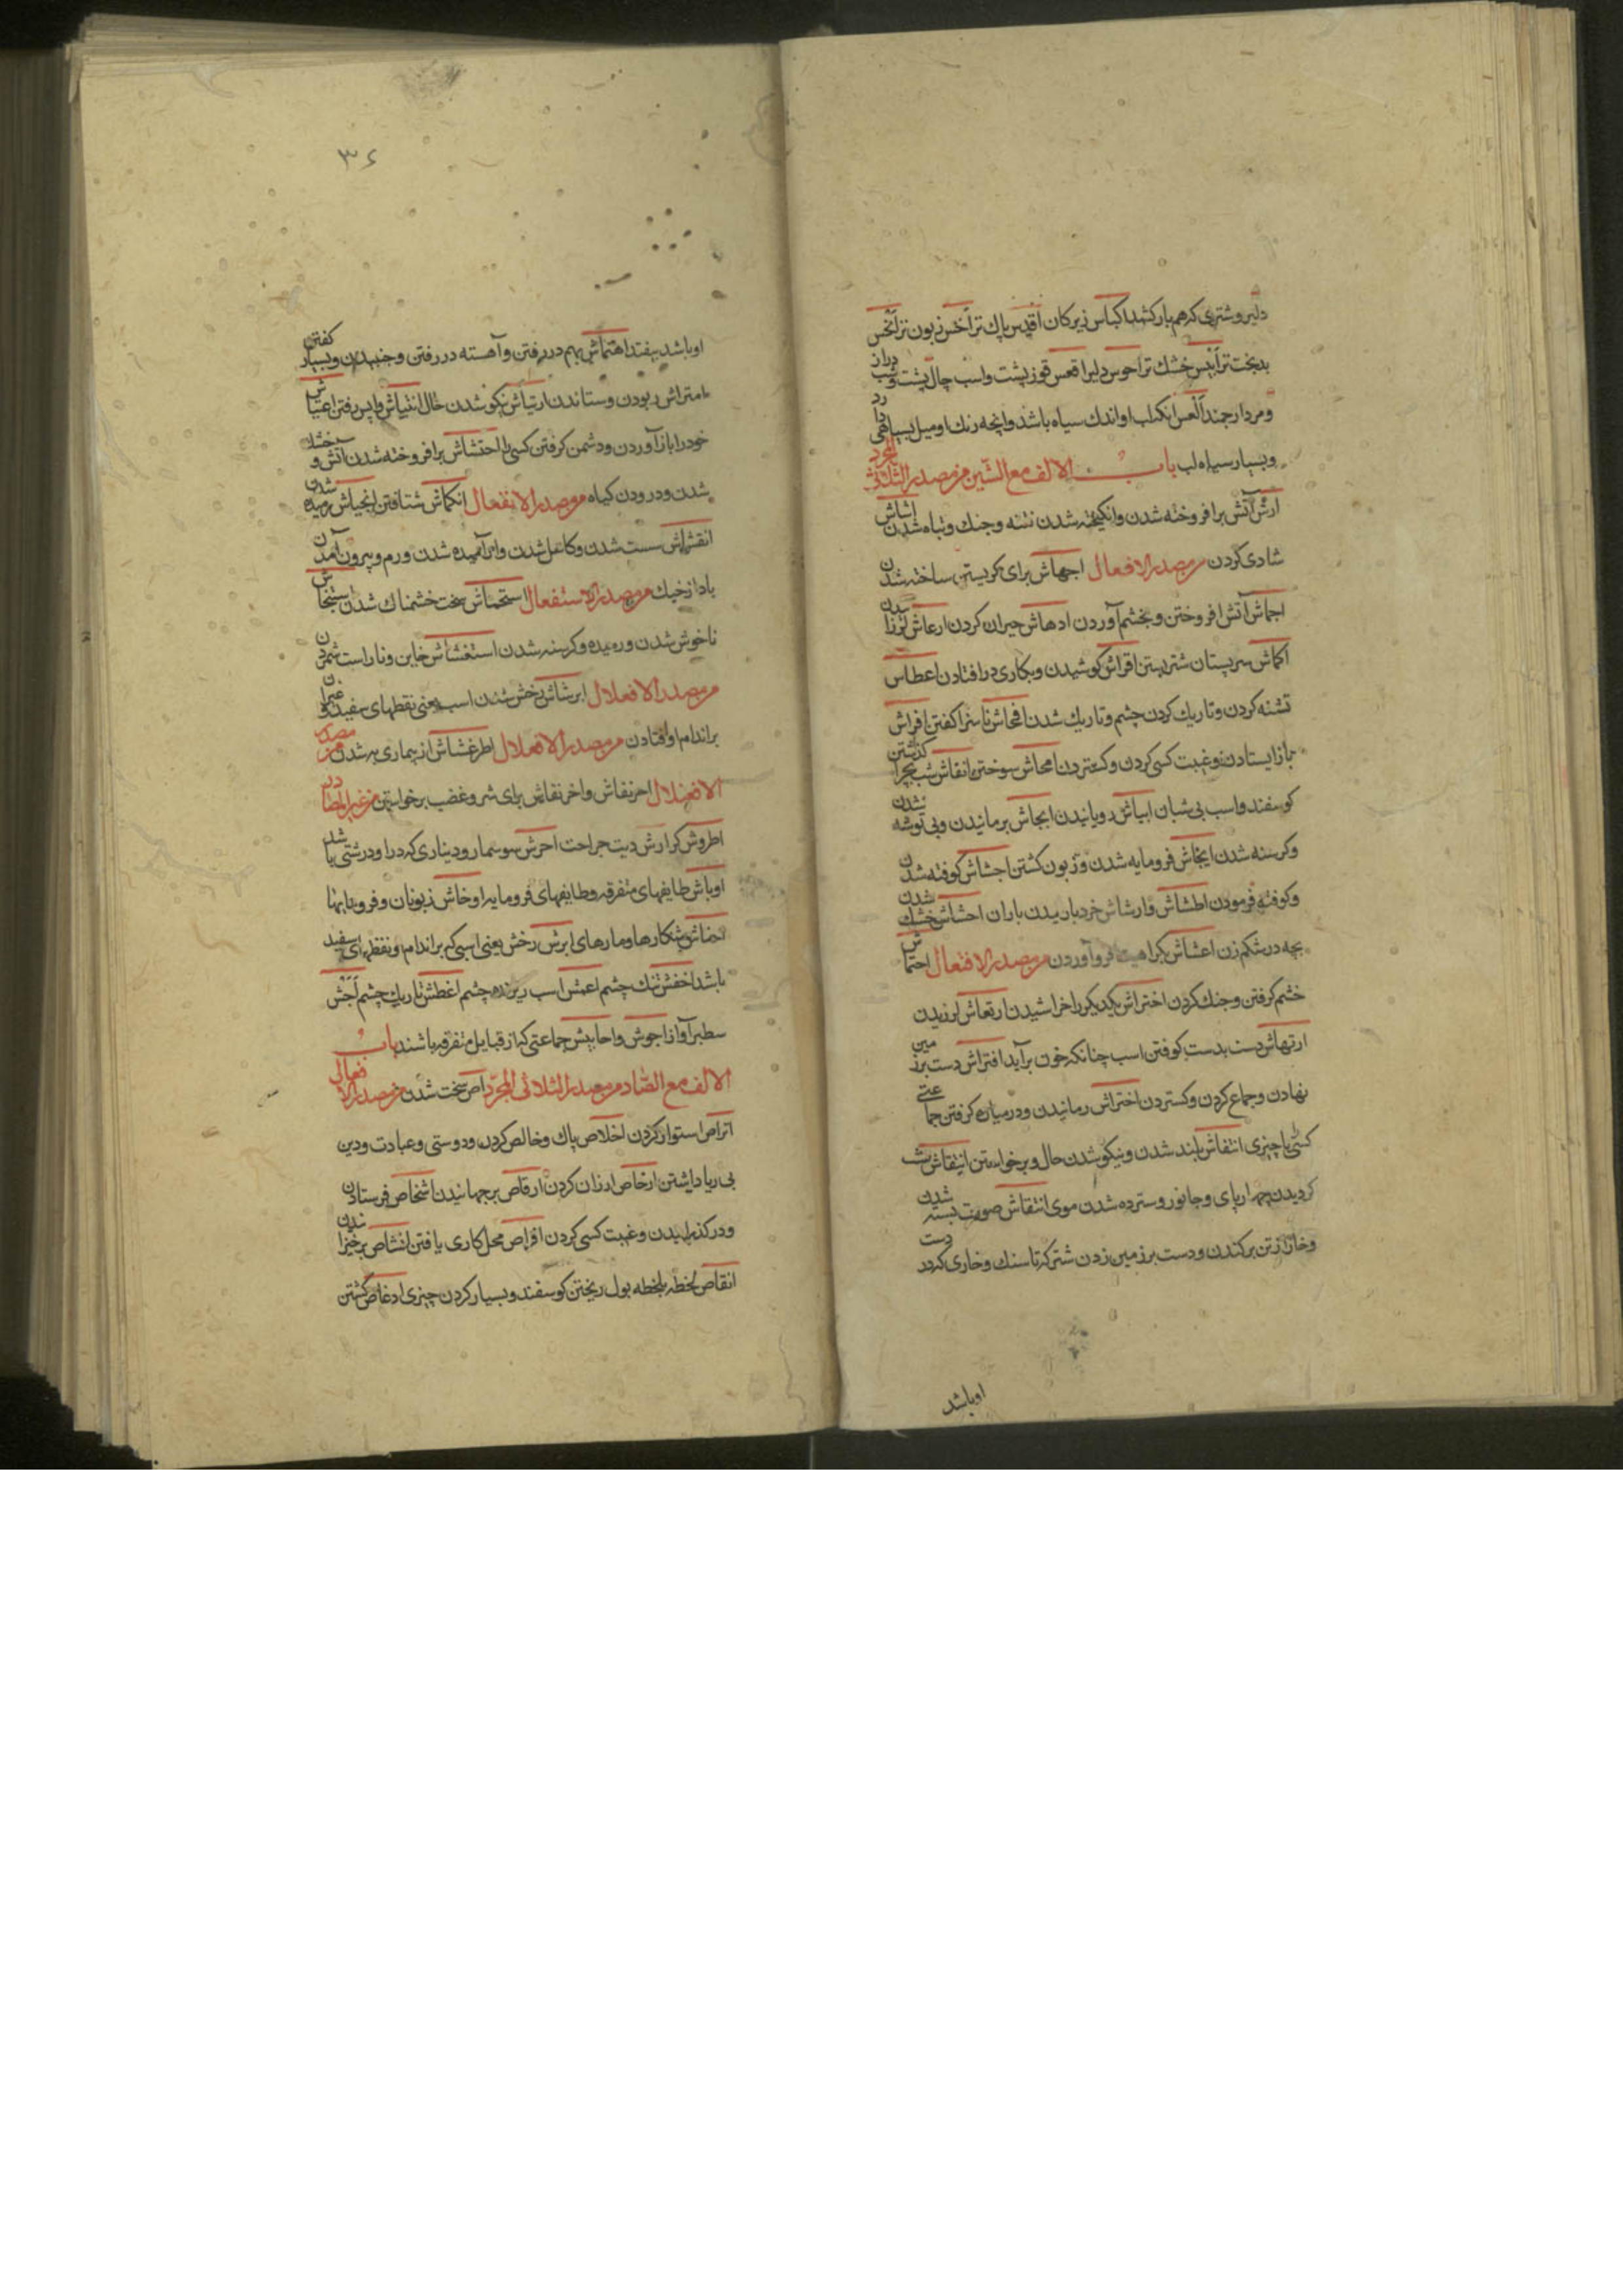 دلیر و شتری که هم بار کشد اکیاس زیرکان اقدس پاک تر اخس زبون تر انحس
بدبخت تر ایبس خشک تر احوس دلیر اقعس قوز پشت و اسب چال پشت و شب دراز
و مرد ارجمند العس انکه لب او اندک سیاه باشد وانچه رنک او میل بسیاهی دارد
و بسیار سیاه لب باب الالف مع الشین من مصدر الثلاثی المجرد
ارش آتش برافروخته شدن وانکیخته شدن فتنه و جنک و تباه شدن اشاش
شادی کردن من مصدر الافعال اجهاش برای کریستن ساخته شدن
اجماش آتش افروختن و بخشم آوردن ادهاش حیران کردن ارعاش لرزانیدن
اکماش سر پستان شتر بستن اقراش کوشیدن و بکاری درافتادن اعطاش
تشنه کردن و تاریک کردن چشم و تاریک شدن افحاش ناسزا کفتن افراش
باز ایستادن و غیبت کسی کردن و کستردن امحاش سوختن انفاش شب بچرا کذاشتن
کوسفند و اسب بی شبان انباش رویانیدن ایحاش برمانیدن و بی توشه شدن
و کرسنه شدن ایخاش فرومایه شدن و زبون کشتن اجشاش کوفته شدن
و کوفته فرمودن اطشاش وارشاش خرد باریدن باران احشاش خشک شدن
بچه در شکم زن اعشاش بکراهیت فرو آوردن من مصدر الافتعال احتماش
خشم کرفتن و جنک کردن اختراش یکدیکر را خراشیدن ارتعاش لرزیدن
ارتهاش دست بدست کوفتن اسب چنانکه خون برآید افتراش دست بر زمین
نهادن و جماع کردن و کستردن احتراش رمانیدن و در میان کرفتن جماعتی
کسی یا چیزی انتفاش بلند شدن و نیکو شدن حال و برخواستن
کردیدن چهارپای و جانور و سترده شدن موی انتقاش صورت بسته شدن
و خار از تن برکندن و دست بر زمین زدن شتر که تا سنک و خاری که در دست
اوباشد
۳۶
او باشد بیفتد اهتماش بهم در رفتن و آهسته در رفتن و جنبیدن و بسیار کفتن
امتراش ربودن و ستاندن ارتیاش نیکو شدن حال انتیاش واپس رفتن
خود را باز آوردن و دشمن کرفتن کسی را احتشاش برافروخته شدن آتش و خشک
شدن و درودن کیاه من مصدر الانفعال انکماش شتافتن انحیاش رمیده شدن
سست شدن و کاهل شدن و آرامیده شدن ورم و بیرون آمدن
باد از خیک من مصدر الاستفعال استحماش سخت خشمناک شدن
ناخوش شدن و رمیده و کرسنه شدن استغشاش خاین و ناراست شمردن
من مصدر الافعلال ابرشاش رخش شدن اسب یعنی نقطهای سفید
براندام او افتادن من مصدر الافعلال اطرغشاش از بیماری به شدن من مصدر
الافعنلال احرنفاش و اخرنفاش برای شر و غضب برخواستن من غیر المصادر
اطروش کر ارش دیت جراحت احرش سوسمار و دیناری که در او درشتی باشد
اوباش طایفهای متفرقه و طایفهای فرومایه اوخاش زبونان و فرومایها
احناش شکارها و مارها ابرش رخش یعنی اسبی که براندام او نقطهای سفید
باشد اخفش تنک چشم اعمش اسب ریزنده چشم اغطش تاریک چشم اجش
سطبر آواز اجوش و احابیش جماعتی که از قبایل متفرقه باشند باب
الالف مع الصاد من مصدر الثلاثی المجرد اص سخت شدن من مصدر الافعال
اتراص استوار کردن اخلاص پاک و خالص کردن و دوستی و عبادت و دین
بی ریا داشتن ارخاص ارزان کردن ارقاص برجهانیدن اشخاص فرستادن
و درکذرانیدن و غیبت کسی کردن افراص محل کاری یافتن انشاص برخیزاندن
انقاص لحظه بلحظه بول ریختن کوسفند و بسیار کردن چیزی ادغاص کشتن